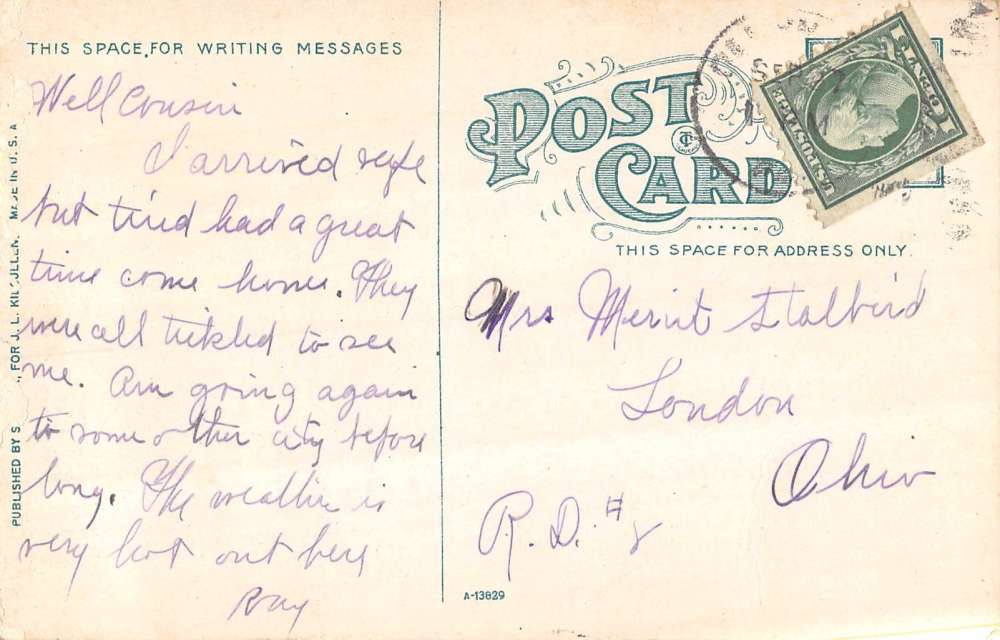 THIS SPACE FOR WRITING MESSAGES
Well Cousin
I arrived safe
but tired had a great
time come home. They
were all tickled to see
me. Am going again
to some other city before
long. The weather is
very hot out here
Ray
PUBLISHED BY S , FOR J. L. MADE IN U. S. A
POST
CARD
THIS SPACE FOR ADDRESS ONLY.
U.S. POSTAGE
1 CENT 1
SEP
Mrs Merrit Stalbird
London
Ohio
R. D. #
A-13829